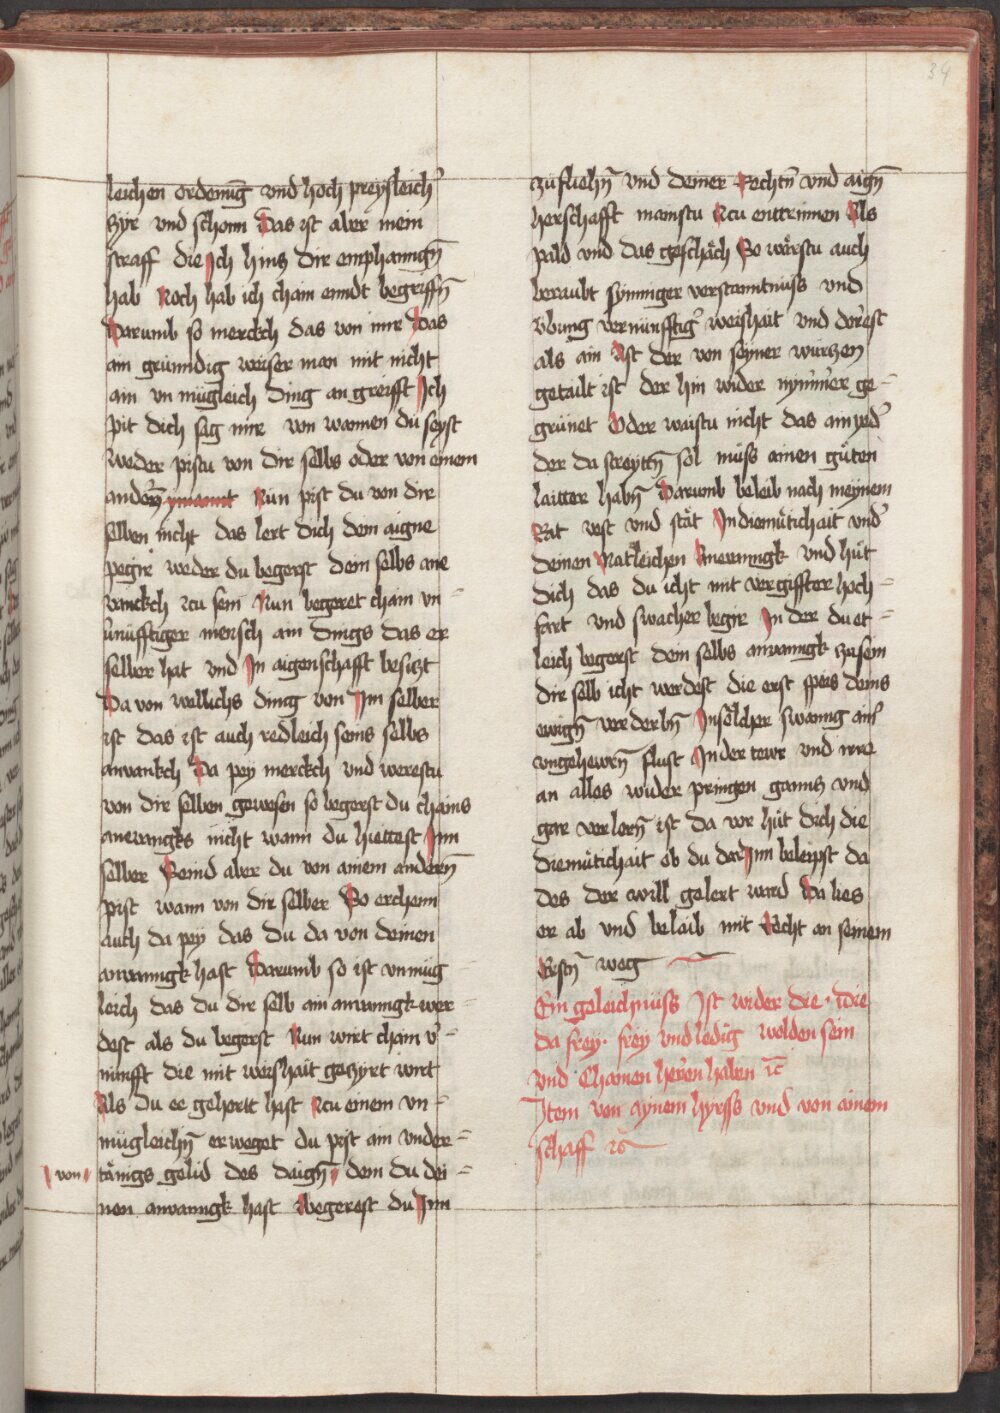 34
leichen ordenūg vnd hoch preysleich̾
Zyr vnd schonn Das ist aber mein
straff die Ich hincz dir emphanngn̄
hab Noch hab ich chain enndt begriffn̄
Darumb so merckch das von mir Das
ain grünndig weiser man mit nicht
ain vn mügleich ding an greifft Ich
pit dich sag mir von wannen du seyst
weder pistu von dir selbs oder von einem
andern̄ Nun pist du von dir
selben nicht das lert dich dein aigne
pegir weder du begerst dein selbs ane
vanckch zcu sein Nun begeret chain vn⸗
ūnüfftiger mensch ain dings das er
selber hat vnd In aigenschafft besiczt
Da von wellichs ding von Im selber
ist das ist auch redleich seins selbs
anvankch Da pey merckch vnd werestu
von dir selben gewesen so begerst du chains
anevangks nicht wann du hiettest Inn
selber Seind aber du von ainem andern̄
pist wann von dir selber So erchenn
auch da pey das du da von deinen
anvanngk hast Darumb so ist vnmüg
leich das du dir selb ain anvanngk wer⸗
dest als du begerst Nun wirt chain v̾⸗
nunfft die mit weishait geczyrt wirt
Als du ee gehortt hast zcu einem vn⸗
mügleichn̄ erweget du pist ain vnder⸗
von tänigs gelid des daign̄ dem du dei⸗
nen anvanngk hast Wegerest du Inn
zufliehn̄ vnd deiner Rechtn̄ vnd aign̄
herschafft mainstu zcu enttrinnen Als
pald vnd das geschäch So wärstu auch
beraubt synniger verstanntnüss vnd
vbung vernünfftig̾ weishait vnd dorest
als ain Ast der von seyner wurczen
getailt ist der hin wider nymmer ge⸗
grünet Oder waistu nicht das ain yed̾
der da streyttn̄ sol müss ainen güten
laitter habn̄ Darumb beleib nach meynem
Rät vest vnd stät In diemütichait vnd̾
deinen Natleichen Anevanngk vnd hüt
dich das du icht mit vergiffter hoch⸗
fart vnd swacher begir In der du et⸗
leich begerst dein selbs anvanngk zusein
dir selb icht werdest die erst speis deins
ewign̄ verderbn̄ In sölcher swanng ain̾
vngehewrn̄ flust In der tewr vnd irre
an alles wider pringen gancz vnd
gar verlorn̄ ist da vor hüt dich die
diemütichait ob du dar Inn beleipst da
des der will gelert ward Da lies
er ab vnd belaib mit Recht an seinem
Erstn̄ weg
Ein geleichnüss Ist wider die · die
da frey · frey vnd ledig wolden sein
vnd Chainen heren haben ꝛc̄
Item von aynem hyrss vnd von ainem
schaff ꝛc̄